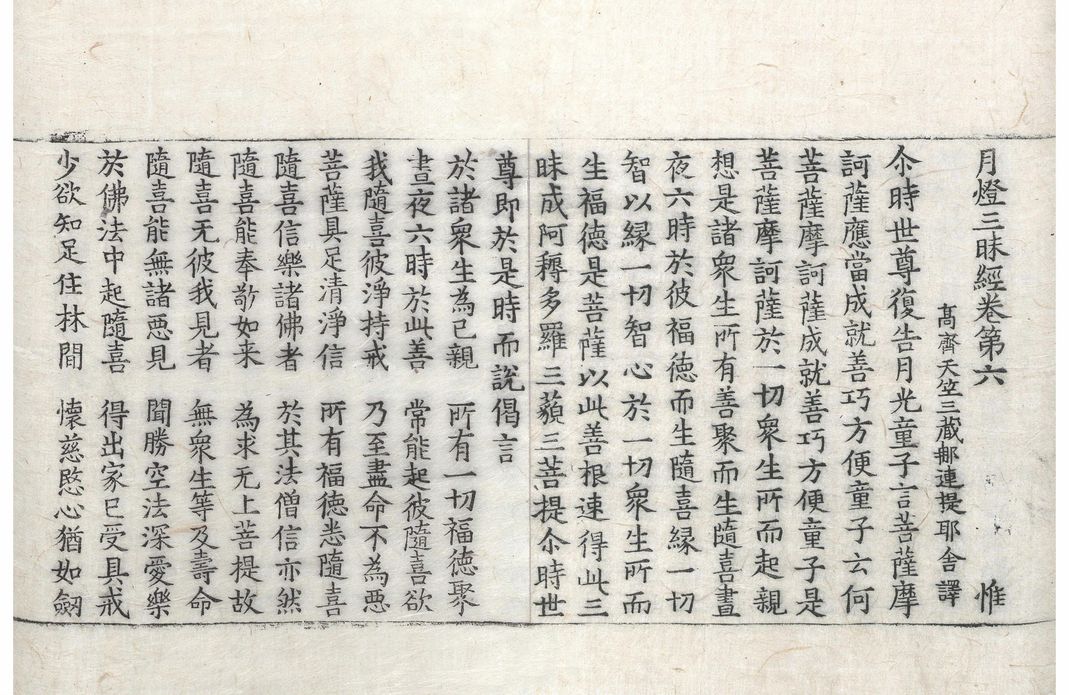 月燈三昧經卷第六 惟
髙齊天竺三藏郍連提耶舍譯
尒時世尊復告月光童子言菩薩摩
訶薩應當成就善巧方便童子云何
菩薩摩訶薩成就善巧方便童子是
菩薩摩訶薩於一切衆生所而起親
想是諸衆生所有善聚而生隨喜晝
夜六時於彼福德而生隨喜縁一切
智以縁一切智心於一切衆生所而
生福德是菩薩以此善根速得此三
昧成阿耨多羅三藐三菩提尒時世
尊即於是時而說偈言
於諸衆生為己親 所有一切福德聚
晝夜六時於此善 常能起彼隨喜欲
我隨喜彼淨持戒 乃至盡命不為惡
菩薩具足清淨信 所有福德悉隨喜
隨喜信樂諸佛者 於其法僧信亦然
隨喜能奉敬如来 為求无上菩提故
隨喜无彼我見者 無衆生等及壽命
隨喜能無諸惡見 聞勝空法深愛樂
於佛法中起隨喜 得出家已受具戒
少欲知足住林閒 懷慈愍心猶如劒